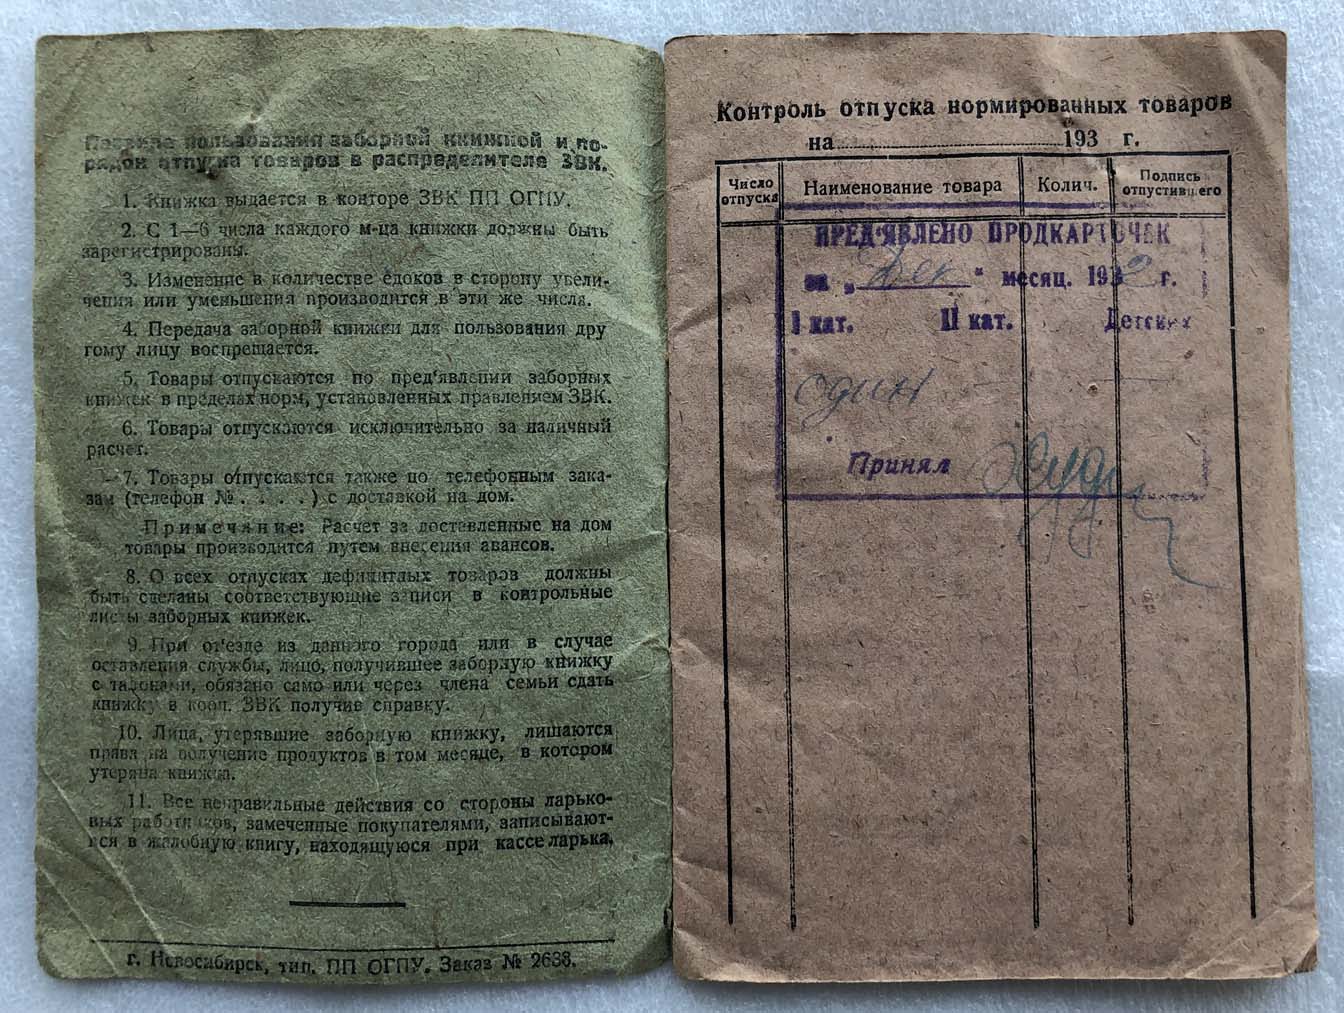 Правила пользования заборной книжкой и по-
рядок отпуска товаров в распределителе ЗВК.
1. Книжка выдается в конторе ЗВК ПП ОГПУ.
2. С 1—6 числа каждого м-ца книжки должны быть
зарегистрированы.
3. Изменение в количестве едоков в сторону увели-
чения или уменьшения производится в эти же числа.
4. Передача заборной книжки для пользования дру
гому лицу воспрещается.
5. Товары отпускаются по пред'явлении заборных
книжек в пределах норм, установленных правлением ЗВК.
6. Товары отпускаются исключительно за наличный
расчет.
7. Товары отпускаются также по телефонным зака-
зам (телефон № . . . . ) с доставкой на дом.
Примечание: Расчет за доставленные на дом
товары производится путем внесения авансов.
8. О всех отпусках дефицитных товаров должны
быть сделаны соответствующие записи в контрольные
листы заборных книжек.
9. При от'езде из данного города или в случае
оставления службы, лицо, получившее заборную книжку
с талонами, обязано само или через члена семьи сдать
книжку в кооп. ЗВК получив справку.
10. Лица, утерявшие заборную книжку, лишаются
права на получение продуктов в том месяце, в котором
утеряна книжка.
11. Все неправильные действия со стороны ларько-
вых работников, замеченные покупателями, записывают-
ся в жалобную книгу, находящуюся при кассе ларька.
г. Новосибирск, тип. ПП ОГПУ. Заказ № 2638.
Контроль отпуска нормированных товаров
на 193 г.
Число отпуска Наименование товара Колич. Подпись отпустившего
ПРЕД'ЯВЛЕНО ПРОДКАРТОЧЕК
за „Дек" месяц. 1932 г.
I кат. II кат. Детских
один
Принял